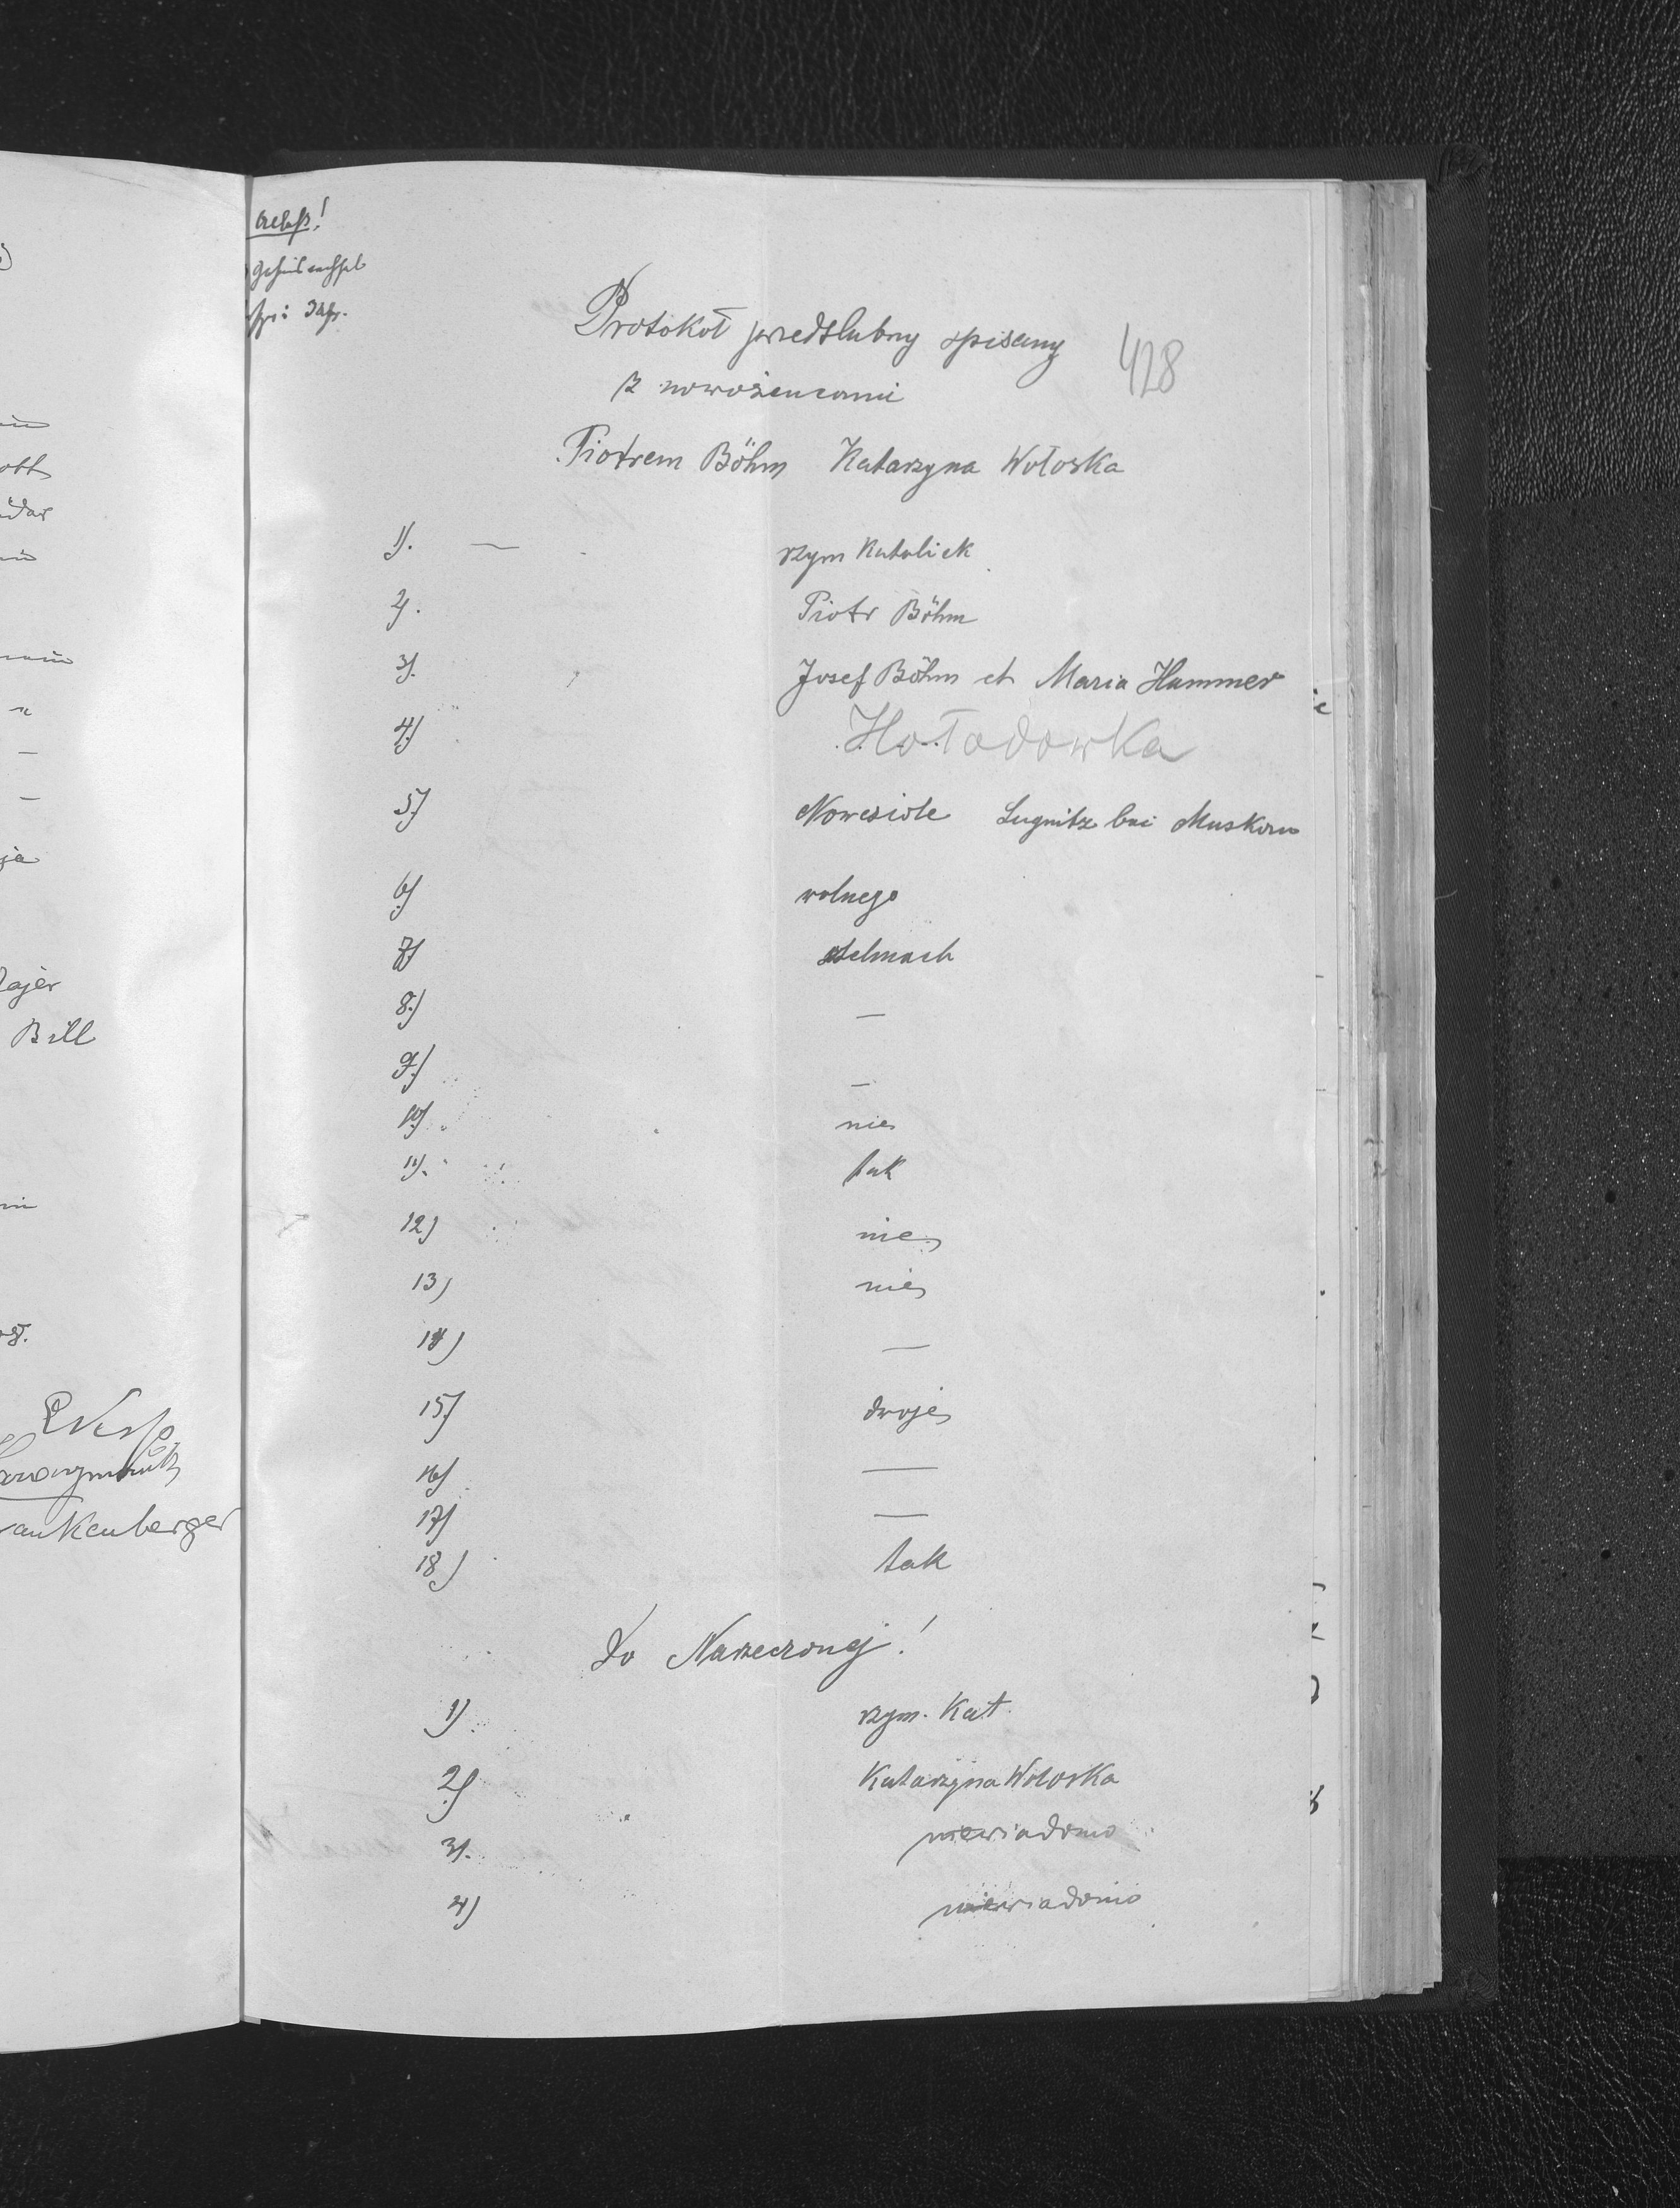 Protokoł przedślubny spisany
428
z nowożencami
Piotrem Böhm Katarzyna Wołoska
1). — rzym Katolick
2). Piotr Böhm
3). Josef Böhm et Maria Hammer
4) Hołodowka
5) Nowesiole Lugnitz bei Muskau
6) wolnego
7) stelmach
8.) —
9.) —
10) nie
11). tak
12) nie
13) nie
14) —
15) dwoje
16) —
17) —
18) tak
Do Narzeczonej!
1) rzym. Kat.
2) Katarzyna Wołoska
3). niewiadomo
4) niewiadomo
ajer
Bill
rankenberger